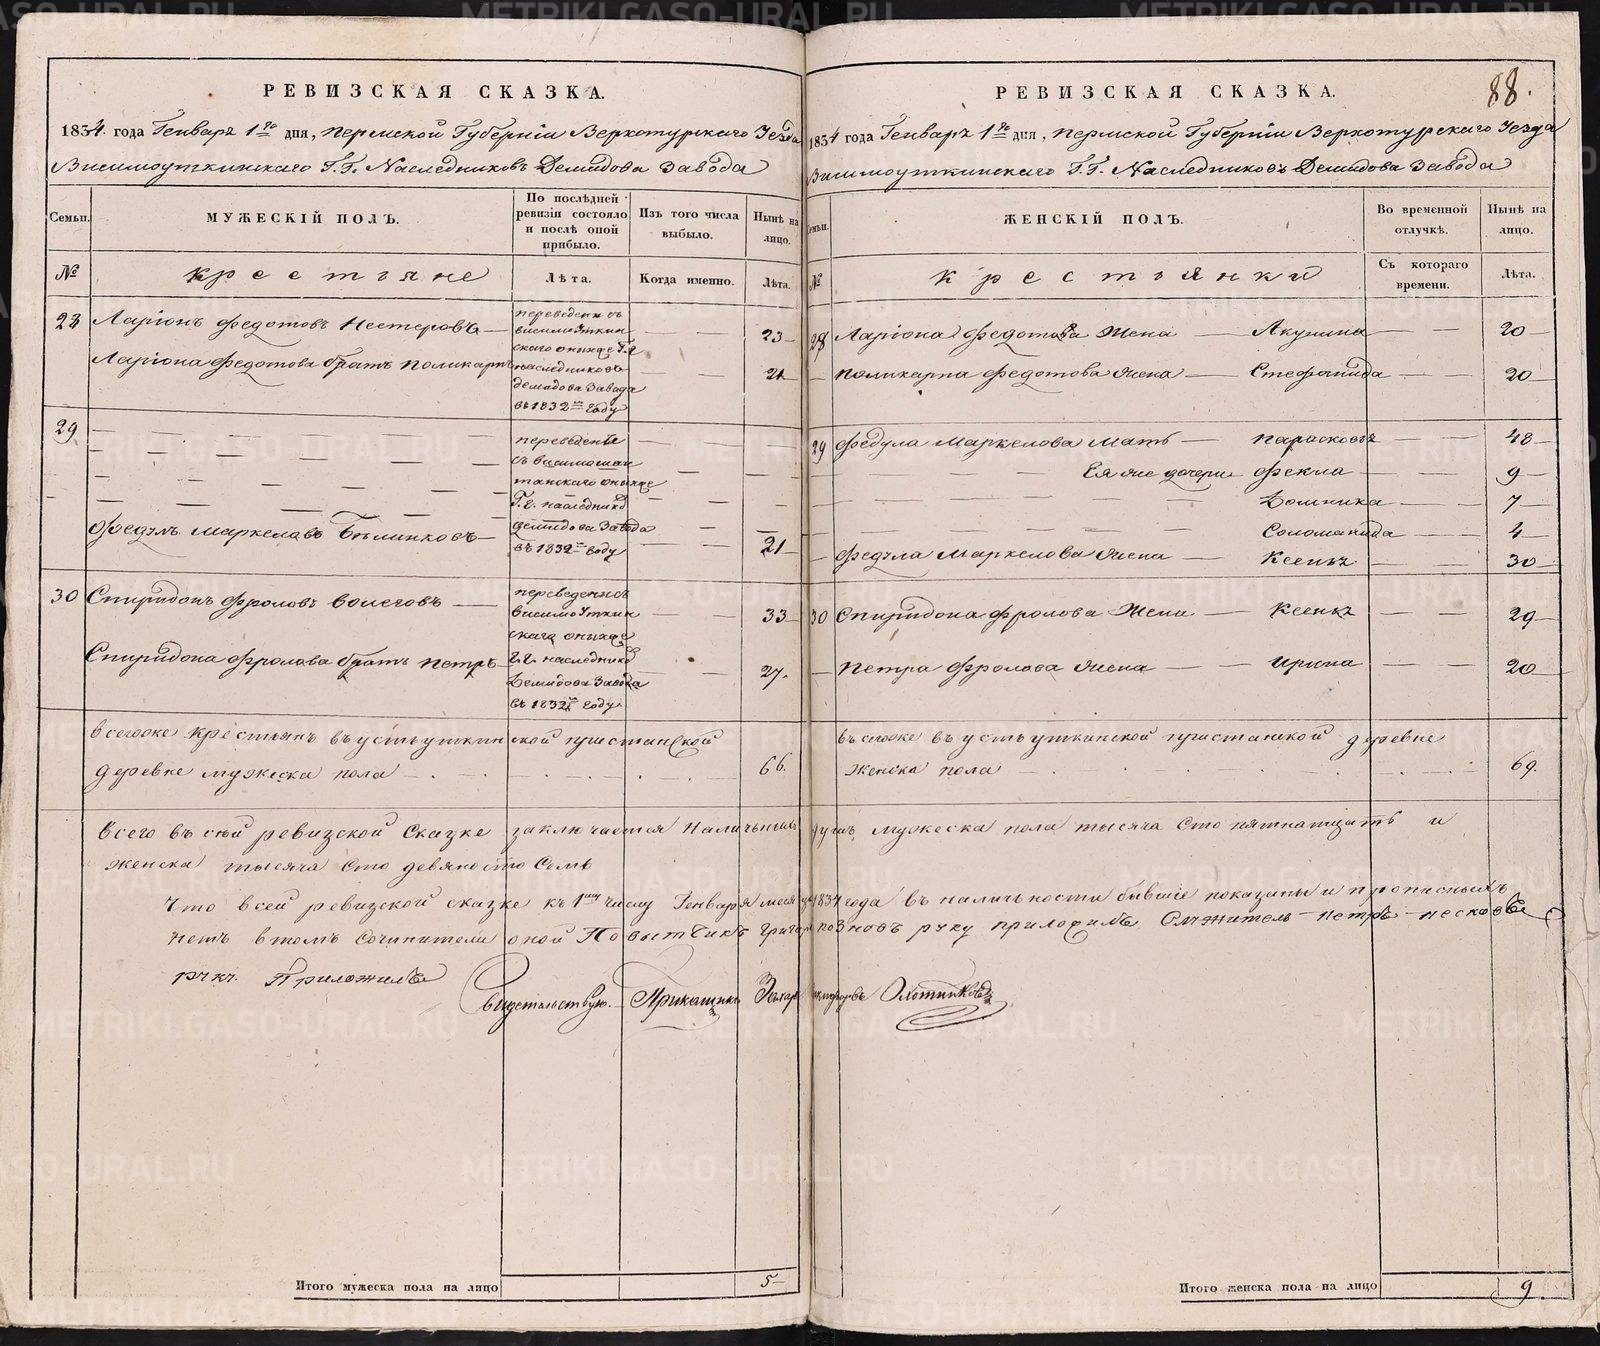 РЕВИЗСКАЯ СКАЗКА.
1834 года Генваря 1го дня, Пермской Губернiи Верхотурскаго Уезда
Висимоуткинскаго Г.Г. Наследниковъ Демидова Завода
Семьи.
МУЖЕСКIЙ ПОЛЪ.
По послѣдней ревизiи состояло и послѣ оной прибыло.
Изъ того числа выбыло.
Нынѣ на лицо.
№
крестьяне
Лѣта.
Когда именно.
Лѣта.
28 Ларiонъ Федотовъ Нестеровъ 23
Ларiона Федотова братъ Поликарпъ 21
переведены съ
висимоуткин
скаго онихже Г.Г.
наследниковъ
демидова Завода
въ 1832м году
29
Федулъ Маркеловъ 21
переведены
съ висимошай
танскаго онихже
Г.Г. наследник
демидова Завода
въ 1832м году
30 Спиридонъ Фроловъ 33
Спиридона Фролова братъ Петръ 27.
переведены съ
висимоУткин
скаго онихже
Г.Г. наследник
Демидова Завода
въ 1832м году
всегоже крестьянъ въ устьуткинской пристанской
деревне мужеска пола 66.
Итого мужеска пола на лицо 5
РЕВИЗСКАЯ СКАЗКА.
88.
1834 года Генваря 1го дня, Пермской Губернiи Верхотурскаго Уезда
Висимоуткинскаго Г.Г. Наследниковъ Демидова Завода
Семьи.
ЖЕНСКIЙ ПОЛЪ.
Во временной отлучкѣ.
Нынѣ на лицо.
№
крестьянки
Съ котораго времени.
Лѣта.
28 Ларiона Федотова Жена Акулина 20
Поликарпа Федотова Жена Стефанида 20
29 Федула Маркелова Мать Парасковья 48
Ея же дочери Фекла 9
Домника 7
Соломанида 4
Федула Маркелова Жена Ксенья 30
30 Спиридона Фролова Жена Ксенья 29
Петра Фролова Жена Ирина 20
въсегоже въ устьуткинской пристанской деревне
женска пола 69.
Всего въ сей ревизской Сказке заключается Наличныхъ душъ мужеска пола тысяча сто пятнатцать и
женска тысяча сто девяносто Семь
Что всей ревизской сказке къ 1му числу Генваря месяца 1834 года въ наличности бывшiе показаны и прописныхъ
нетъ втомъ Сочинители оной Повытчикъ руку приложилъ Служитель Петръ Песковъ
руку Приложилъ
Свидетельствую. Прикащикъ Захаръ Охотниковъ
Итого женска пола на лицо 9.
METRIKI.GASO-URAL.RU